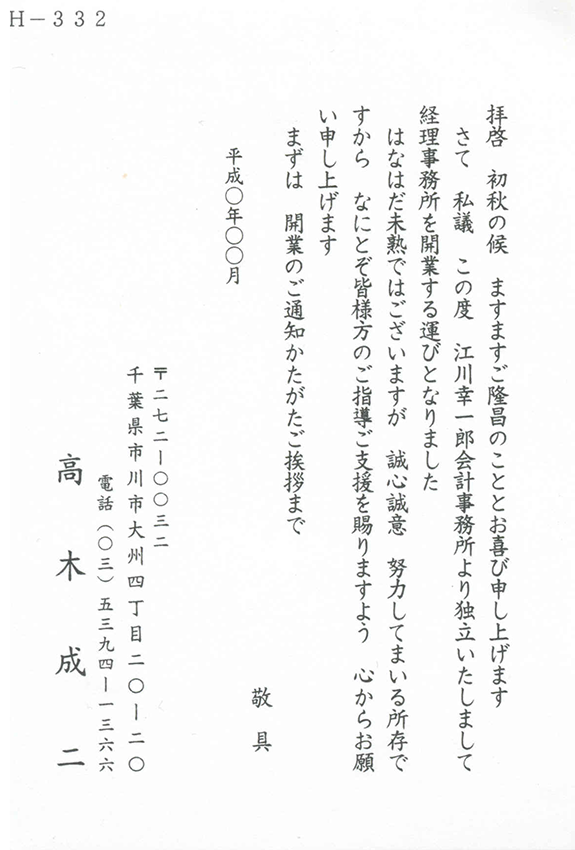 H－３３２
拝啓　初秋の候　ますますご隆昌のこととお喜び申し上げます
さて　私議　この度　江川幸一郎会計事務所より独立いたしまして
経理事務所を開業する運びとなりました
はなはだ未熟ではございますが　誠心誠意　努力してまいる所存で
すから　なにとぞ皆様方のご指導ご支援を賜りますよう　心からお願
い申し上げます
まずは　開業のご通知かたがたご挨拶まで
敬具
平成〇年〇〇月
〒二七二ー〇〇三二
千葉県市川市大州四丁目二〇ー二〇
電話（〇三）五三九四ー一三六六
高木成二